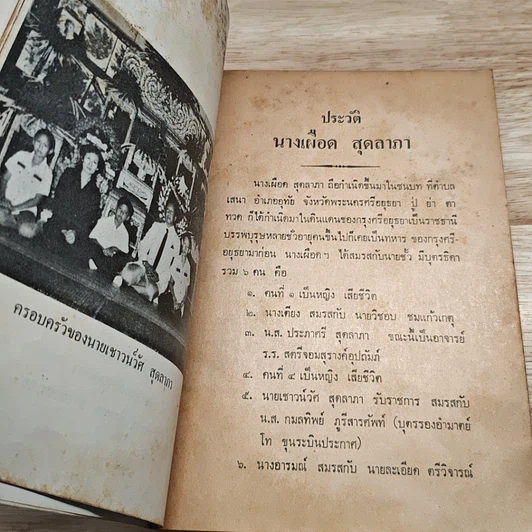 ครอบครัวของนายเชาวน์วัศ สุดลาภา
ประวัติ
นางเผือด สุดลาภา
นางเผือด สุดลาภา ถือกำเนิดขึ้นมาในชนบท ที่ตำบล
เสนา อำเภออุทัย จังหวัดพระนครศรีอยุธยา ปู่ ย่า ตา
ทวด ก็ได้กำเนิดมาในดินแดนของกรุงศรีอยุธยาเป็นราชธานี
บรรพบุรุษหลายชั่วอายุคนขึ้นไปก็เคยเป็นทหาร ของกรุงศรี-
อยุธยามาก่อน นางเผือดฯ ได้สมรสกับนายชั้ว มีบุตรธิดา
รวม ๖ คน คือ
๑. คนที่ ๑ เป็นหญิง เสียชีวิต
๒. นางเตียง สมรสกับ นายวิชอบ ชมแก้วเกตุ
๓. น.ส. ประภาศรี สุดลาภา ขณะนี้เป็นอาจารย์
ร.ร. สตรีจอมสุรางค์อุปถัมภ์
๔. คนที่ ๔ เป็นหญิง เสียชีวิต
๕. นายเชาวน์วัศ สุดลาภา รับราชการ สมรสกับ
น.ส. กมลทิพย์ ภูรีสารศัพท์ (บุตรรองอำมาตย์
โท ขุนระบินประกาศ)
๖. นางอารมณ์ สมรสกับ นายละเอียด ตรีวิจารณ์